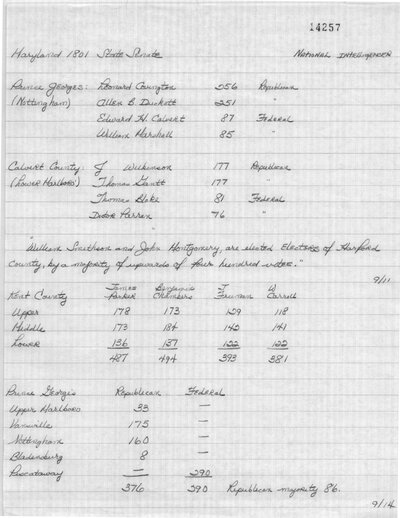 14257
Maryland 1801 State Senate National Intelligencer
Prince Georges: Leonard Covington 256 Republican
(Nottingham) Allen B. Duckett 251 "
Edward H. Calvert 87 Federal
William Marshall 85 "
Calvert County: J Wilkinson 177 Republican
(Lower Marlboro) Thomas Gantt 177 "
Thomas Blake 81 Federal
76 "
"William Smithson and John Montgomery, are elected Electors of Harford
County, by a majority of upwards of four hundred votes."
9/11
James Benjamin J W
Kent County Parker Chambers Freeman Carroll
Upper 178 173 129 118
Middle 173 184 142 141
Lower 136 137 122 122
487 494 393 381
Prince Georges Republican Federal
Upper Marlboro 33 —
Vansville 175 —
Nottingham 160 —
Bladensburg 8 —
Piscataway — 290
376 290 Republican majority 86.
9/14